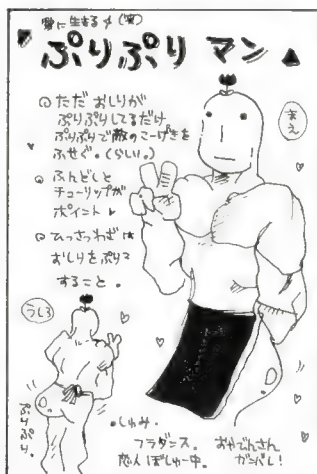 愛に生きる♂(笑)
ぷりぷりマン
まえ
ただ おしりが
ぷりぷりしてるだけ
ぷりぷりで敵のこーげきを
ふせぐ。(らしい。)
ふんどしと
チューリップが
ポイント
ひっさつわざは
おしりをぷりぷり
すること。
うしろ
ぷりぷり。
・しゅみ。
フラダンス。
恋人ぼしゅー中
おやでんさん
ガンバレ!